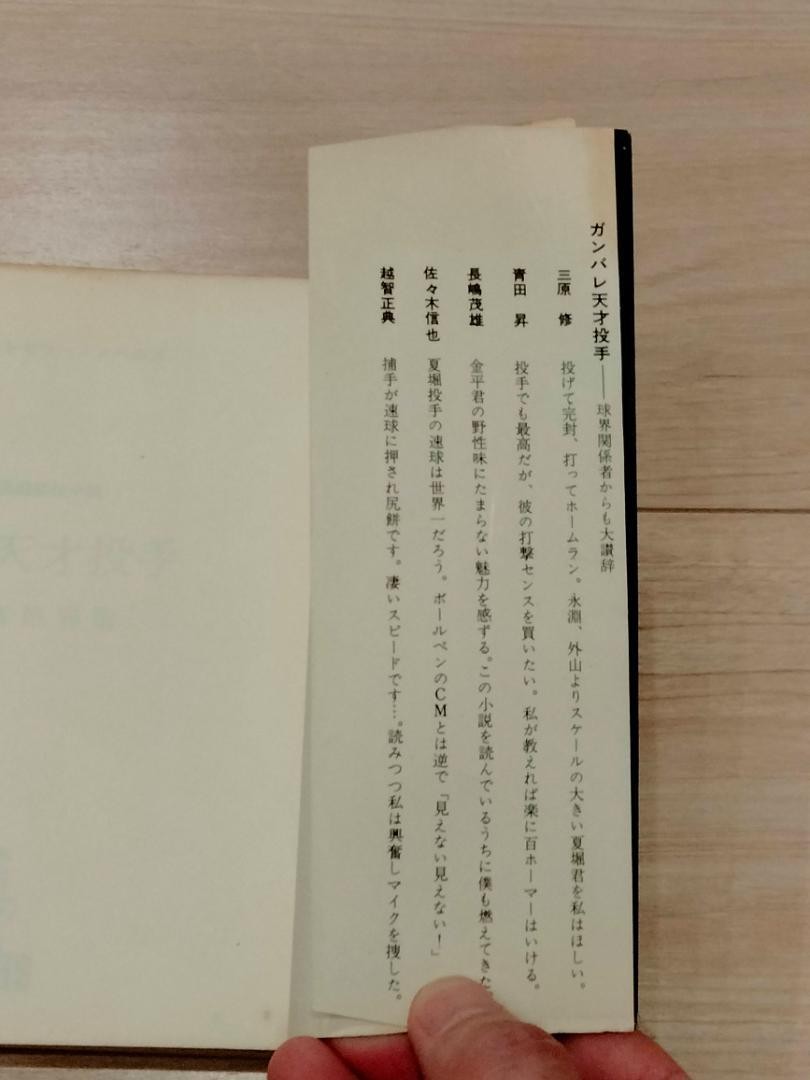 ガンバレ天才投手——球界関係者からも大讃辞
三原　修　投げて完封、打ってホームラン。永淵、外山よりスケールの大きい夏堀君を私はほしい。
青田　昇　投手でも最高だが、彼の打撃センスを買いたい。私が教えれば楽に百ホーマーはいける。
長嶋茂雄　金平君の野性味にたまらない魅力を感ずる。この小説を読んでいるうちに僕も燃えてきた。
佐々木信也　夏堀投手の速球は世界一だろう。ボールペンのCMとは逆で「見えない見えない！」
越智正典　捕手が速球に押され尻餅です。凄いスピードです…。読みつつ私は興奮しマイクを捜した。